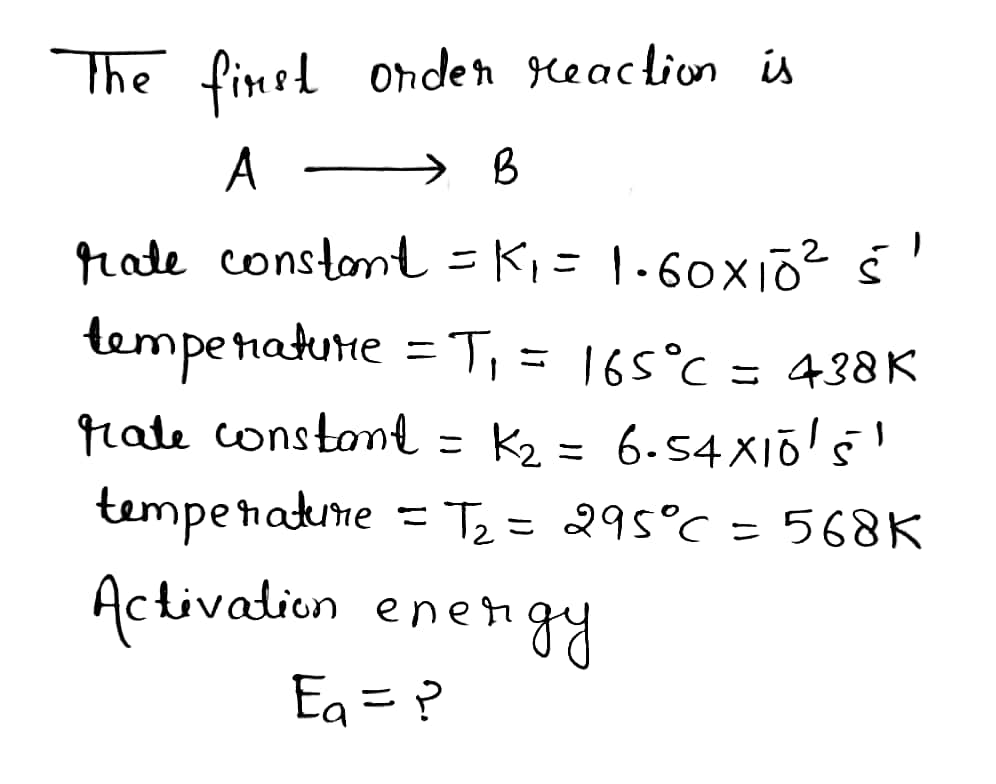 The first order reaction is
A ⟶ B
rate constant = K₁ = 1.60×10⁻² s⁻¹
temperature = T₁ = 165°C = 438K
rate constant = K₂ = 6.54×10⁻¹ s⁻¹
temperature = T₂ = 295°C = 568K
Activation energy
Ea = ?